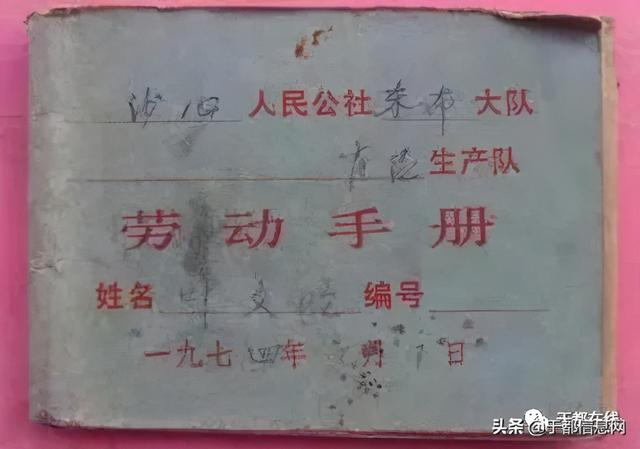 沙心人民公社朱布大队
生产队
劳动手册
姓名 编号
一九七四年 月 日
于都在线
头条@于都信息网